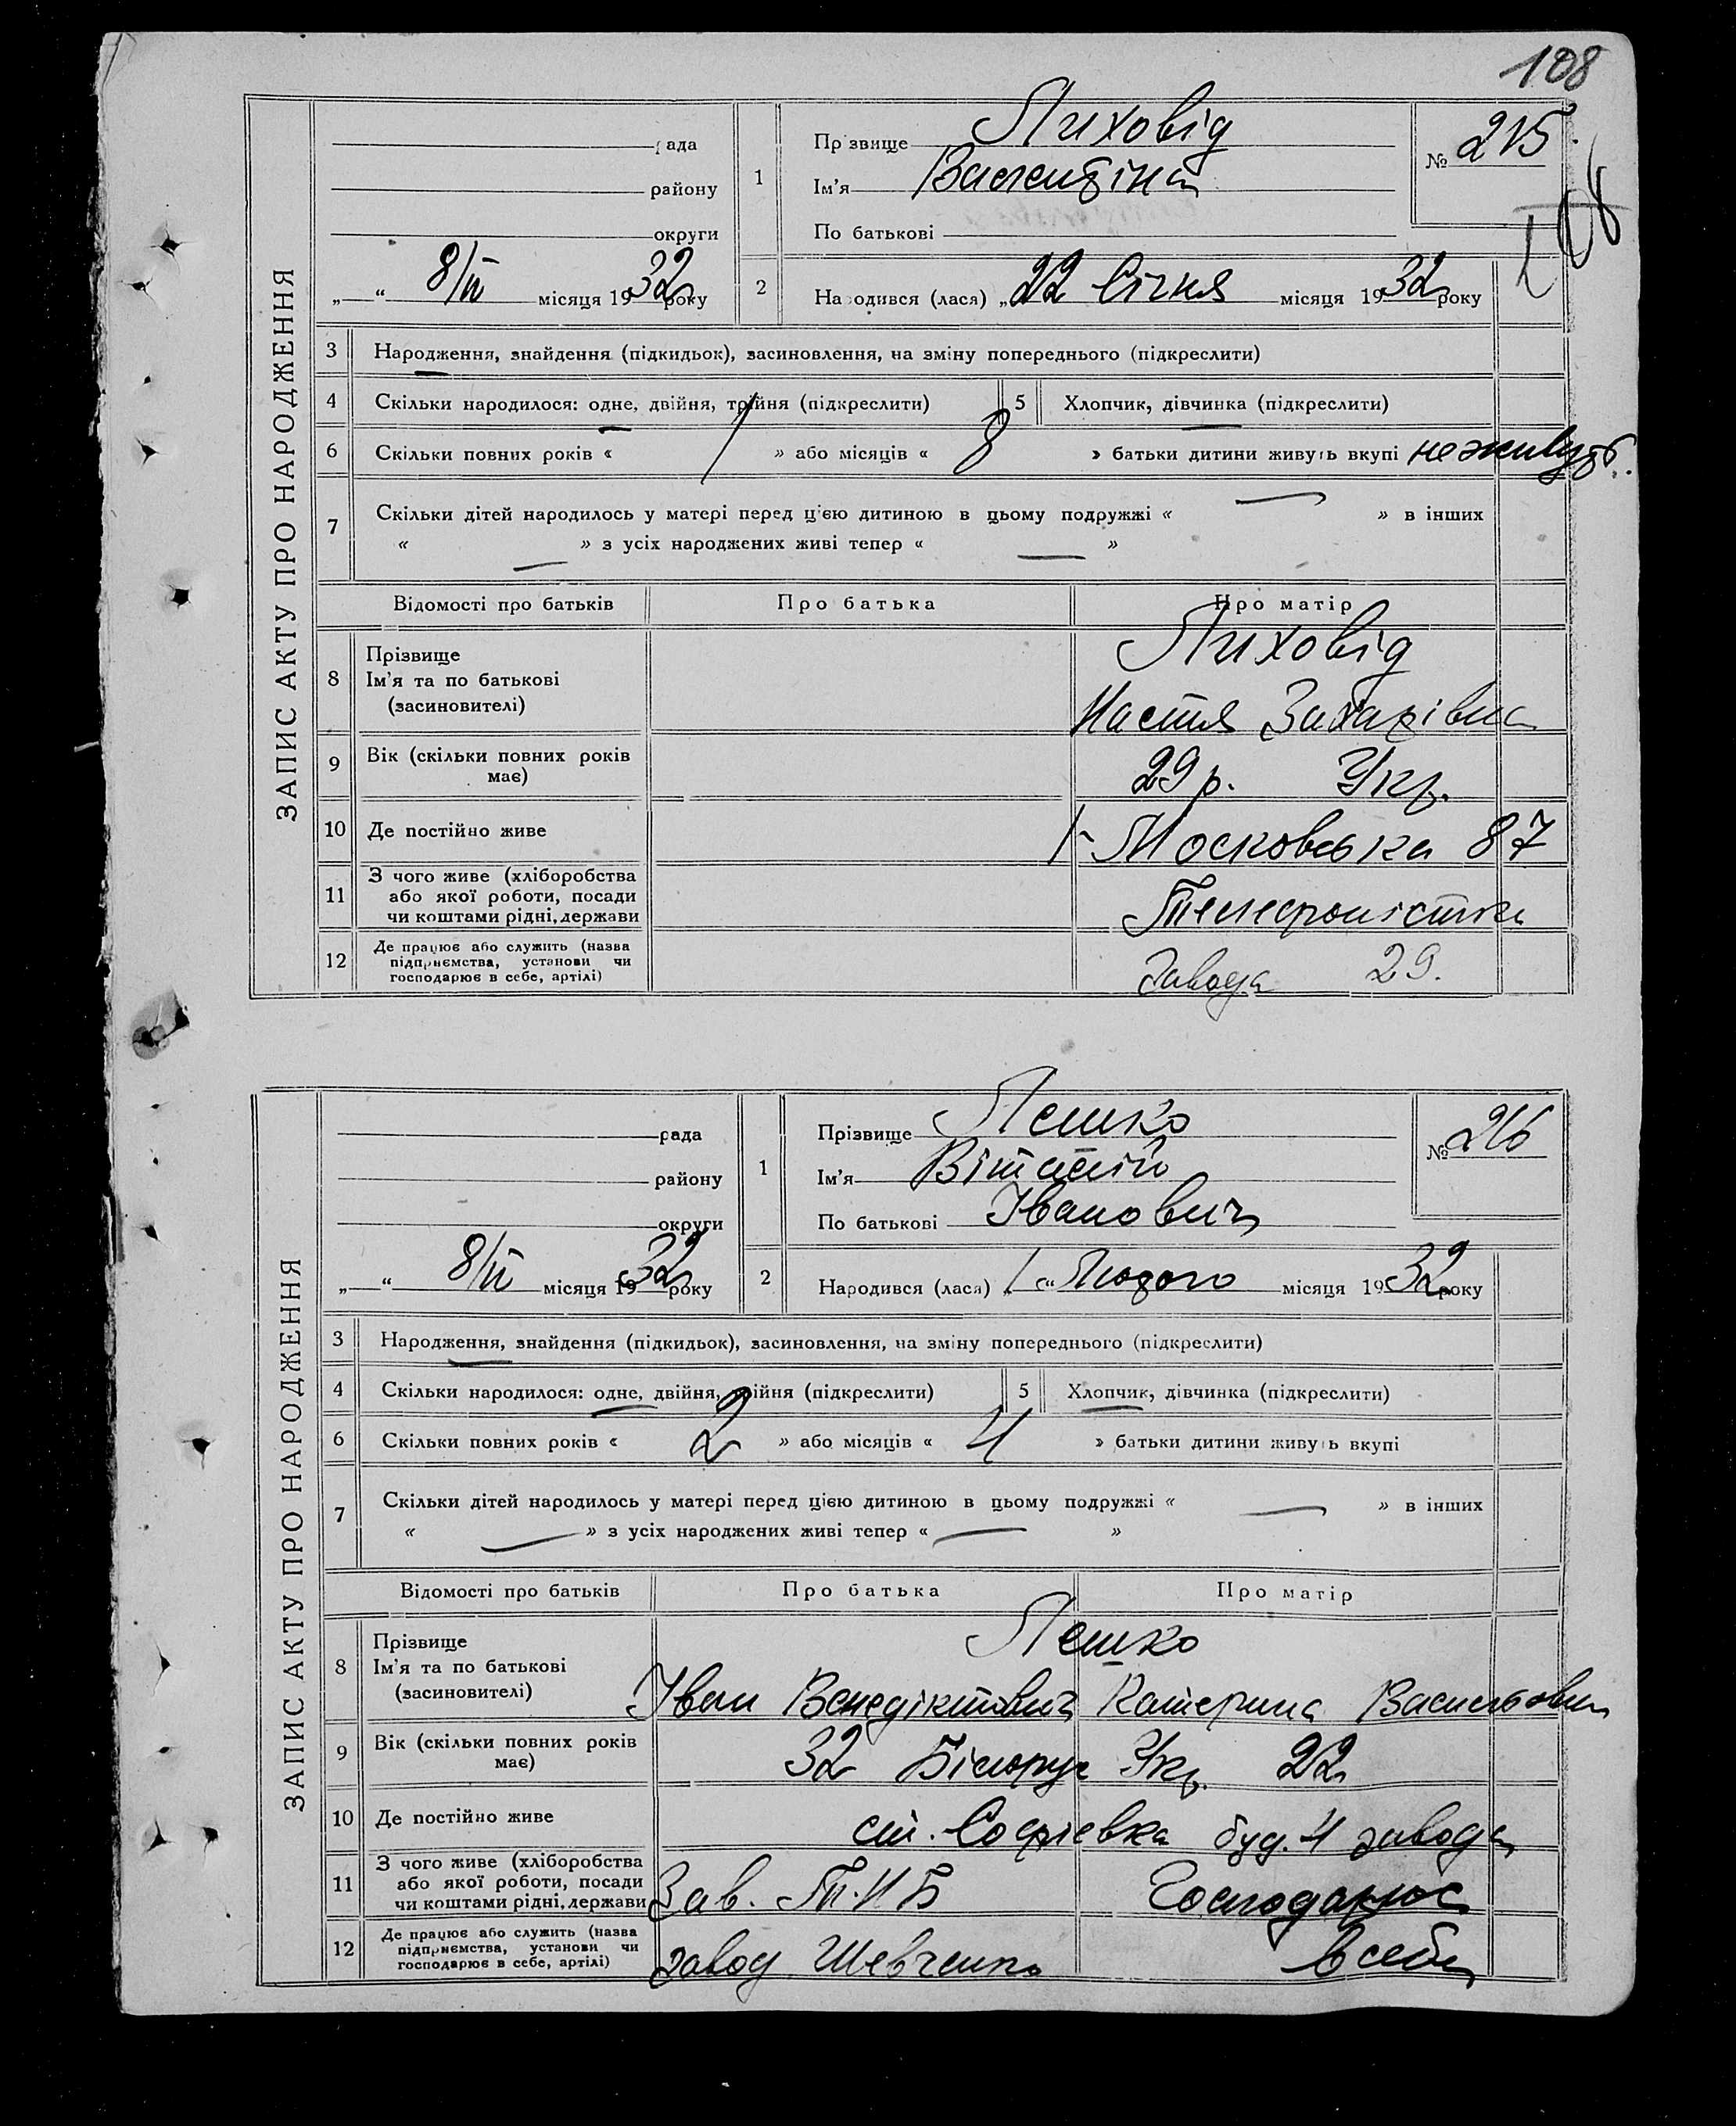 108
ЗАПИС АКТУ ПРО НАРОДЖЕННЯ
рада
району
округи
„ “ 8/ІІ місяця 1932 року
1 Прізвище Лиховід
Ім'я Валентіна
По батькові
№ 215
108
2 Народився (лася) „22 Січня місяця 1932 року
3 Народження, знайдення (підкидьок), засиновлення, на зміну попереднього (підкреслити)
4 Скільки народилося: одне, двійня, трійня (підкреслити) 5 Хлопчик, дівчинка (підкреслити)
6 Скільки повних років « / » або місяців « 8 » батьки дитини живуть вкупі не живуть.
7 Скільки дітей народилось у матері перед цією дитиною в цьому подружжі « — » в інших
« — » з усіх народжених живі тепер « — »
Відомості про батьків Про батька Про матір
8 Прізвище Лиховід
Ім'я та по батькові Настя Захарівна
(засновителі)
9 Вік (скільки повних років має) 29 р. Укр.
10 Де постійно живе Московська 87
11 З чого живе (хліборобства або якої роботи, посади чи коштами рідні, держави Телефоністка
12 Де працює або служить (назва підприємства, установи чи господарює в себе, артілі) Завода 29.
ЗАПИС АКТУ ПРО НАРОДЖЕННЯ
рада
району
округи
„ “ 8/ІІ місяця 1932 року
1 Прізвище Лешко
Ім'я Віталій
По батькові Іванович
№ 216
2 Народився (лася) „1“ Лютого місяця 1932 року
3 Народження, знайдення (підкидьок), засиновлення, на зміну попереднього (підкреслити)
4 Скільки народилося: одне, двійня, трійня (підкреслити) 5 Хлопчик, дівчинка (підкреслити)
6 Скільки повних років « 2 » або місяців « 4 » батьки дитини живуть вкупі
7 Скільки дітей народилось у матері перед цією дитиною в цьому подружжі « — » в інших
« — » з усіх народжених живі тепер « — »
Відомості про батьків Про батька Про матір
8 Прізвище Лешко
Ім'я та по батькові Іван Венедіктович Катерина Васильовна
(засиновителі)
9 Вік (скільки повних років має) 32 Білорус Укр. 22
10 Де постійно живе ст. Софієвка буд. 4 завода
11 З чого живе (хліборобства або якої роботи, посади чи коштами рідні, держави Зав. Т.Н.Б Господарює
12 Де працює або служить (назва підприємства, установи чи господарює в себе, артілі) завод Шевченко в себе